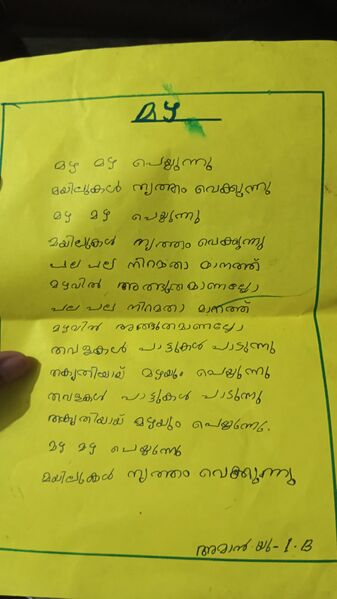 മഴ
മഴ മഴ പെയ്യുന്നു
മയിലുകൾ നൃത്തം വെക്കുന്നു
മഴ മഴ പെയ്യുന്നു
മയിലുകൾ നൃത്തം വെക്കുന്നു
പല പല നിറമതാ മാനത്ത്
മഴവിൽ അത്ഭുതമാണല്ലോ
പല പല നിറമതാ മാനത്ത്
മഴവിൽ അത്ഭുതമാണല്ലോ
തവളകൾ പാട്ടുകൾ പാടുന്നു
തകൃതിയായ് മഴയും പെയ്യുന്നു
തവളകൾ പാട്ടുകൾ പാടുന്നു
തകൃതിയായ് മഴയും പെയ്യുന്നു.
മഴ മഴ പെയ്യുന്നു
മയിലുകൾ നൃത്തം വെക്കുന്നു
അമാൻ യു - I. B